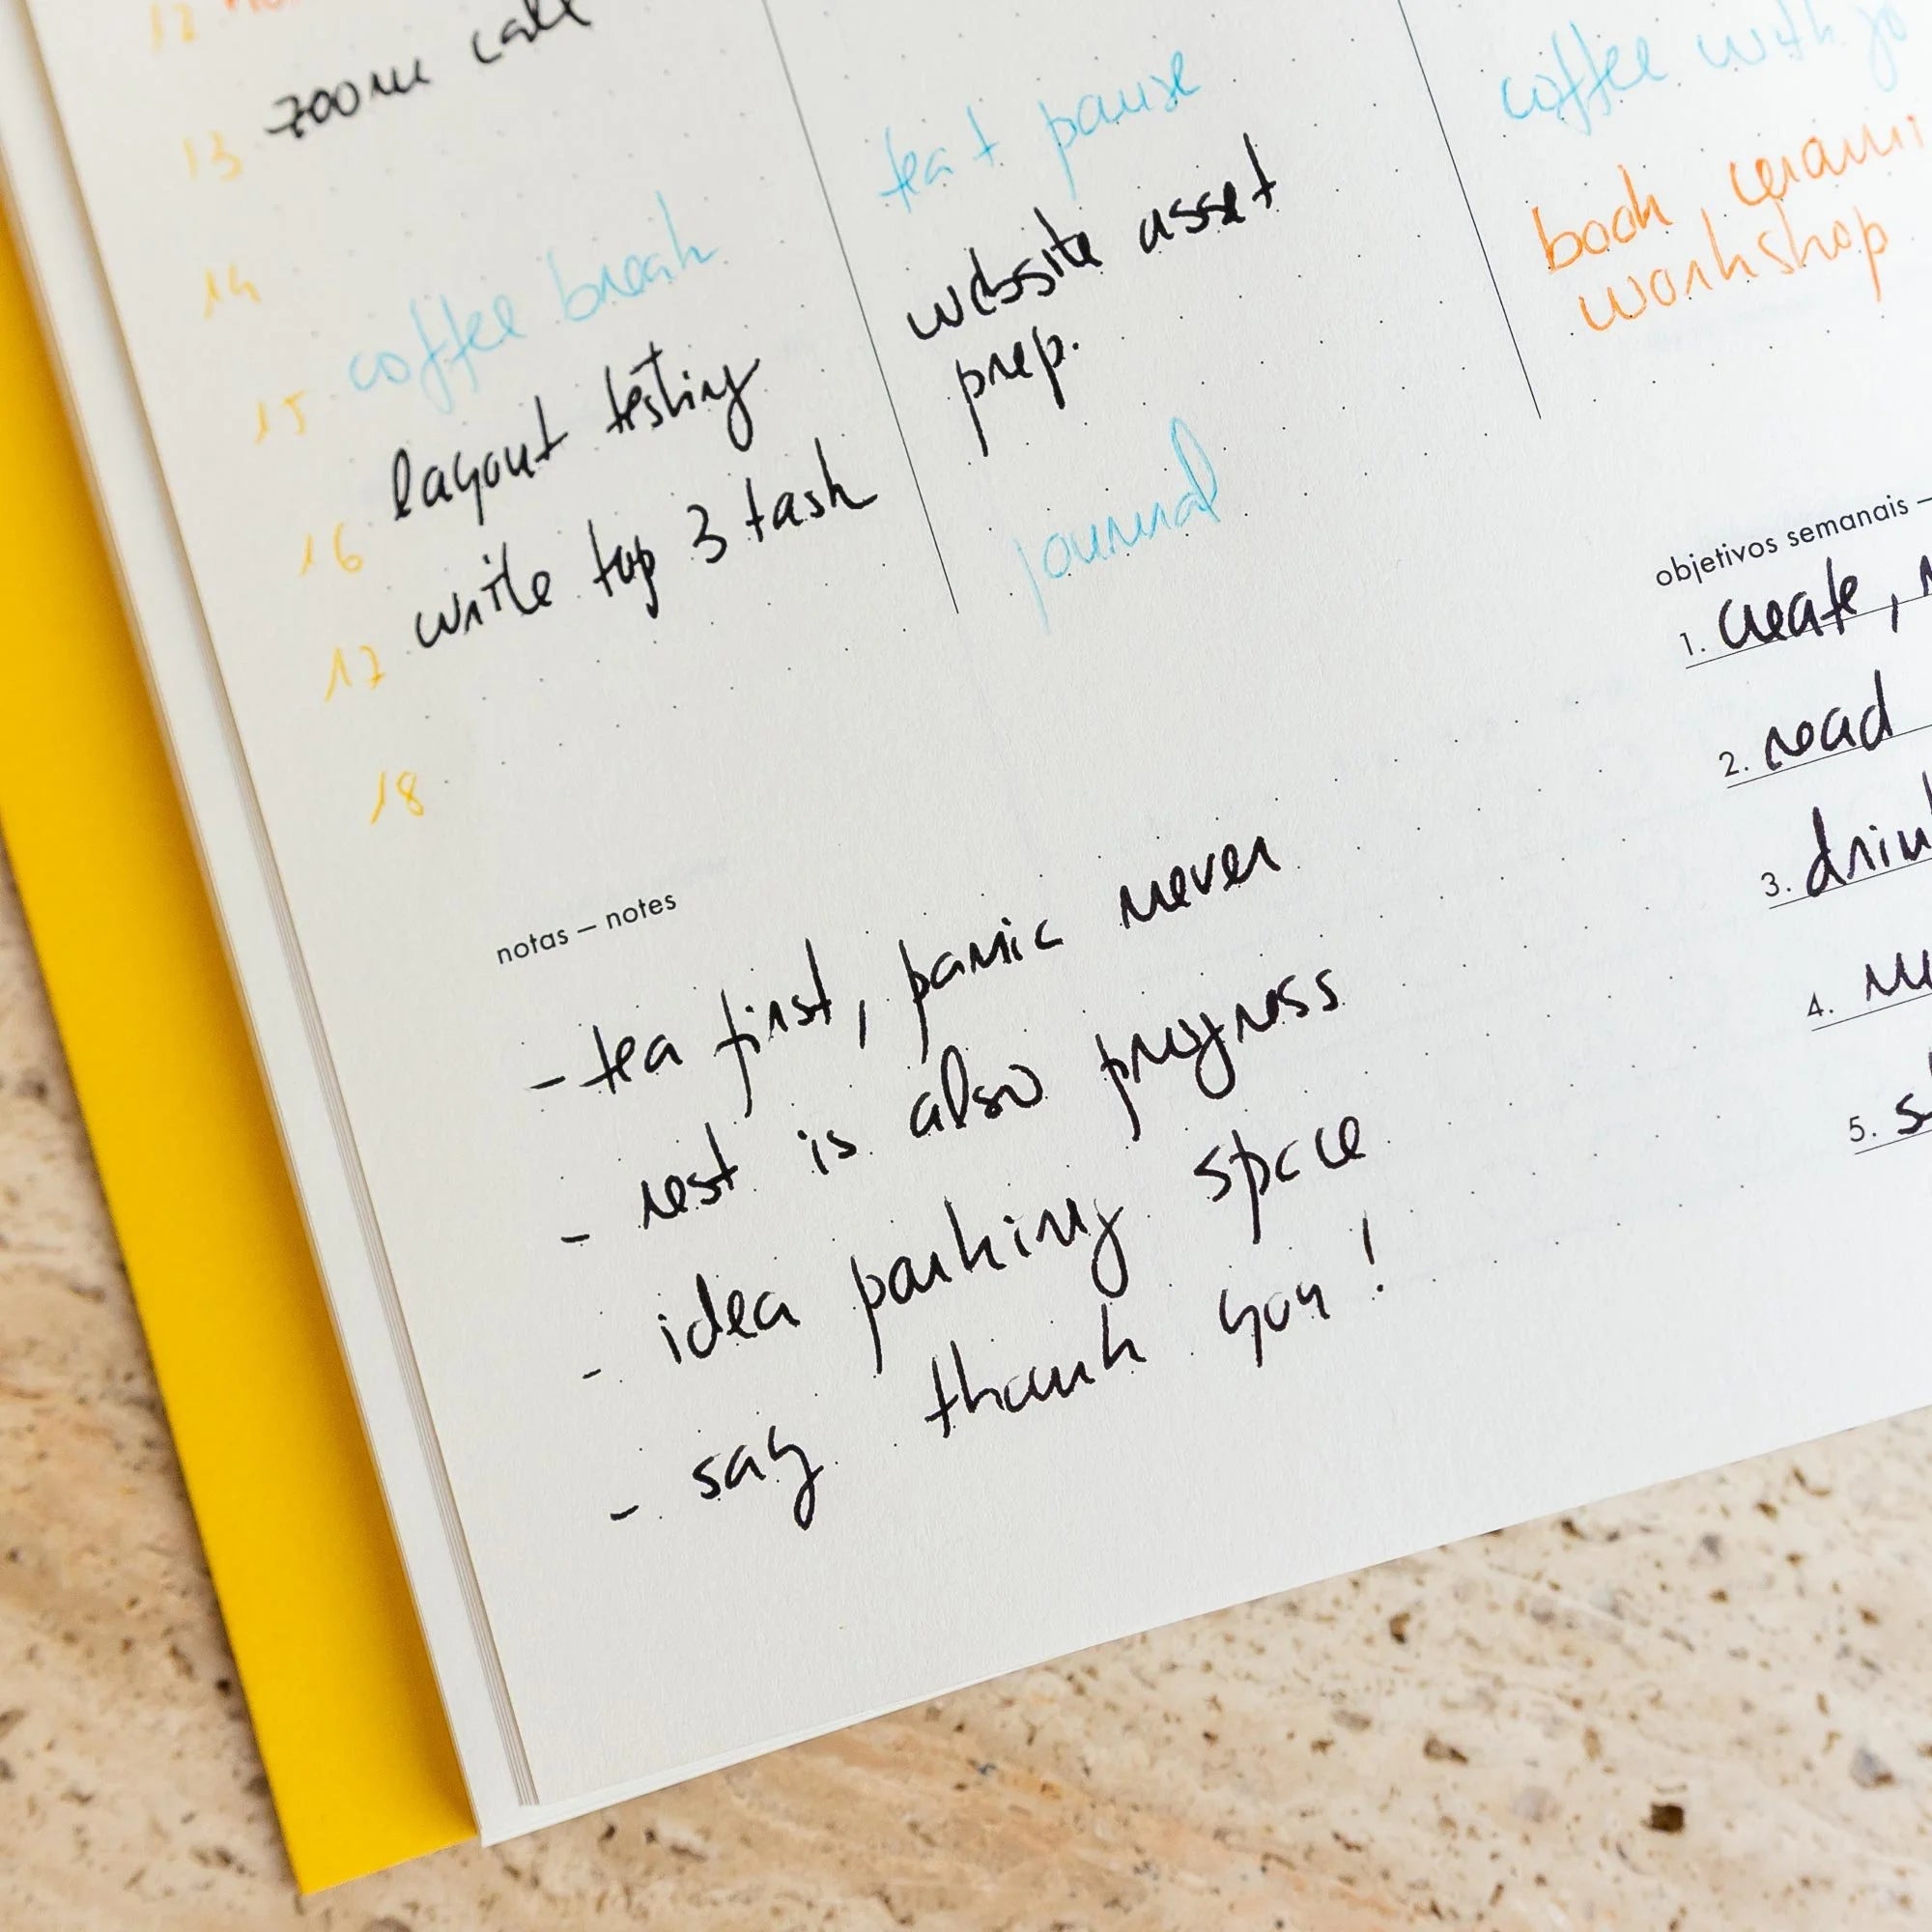 12
zoom call
13
14
coffee break
15
layout testing
16
write top 3 task
17
18
tea + pause
website asset
prep.
journal
coffee with
book
workshop
objetivos semanais –
1. create,
2. read
3.
4.
5.
notas – notes
- tea first, panic never
- rest is also progress
- idea parking space
- say thank you!